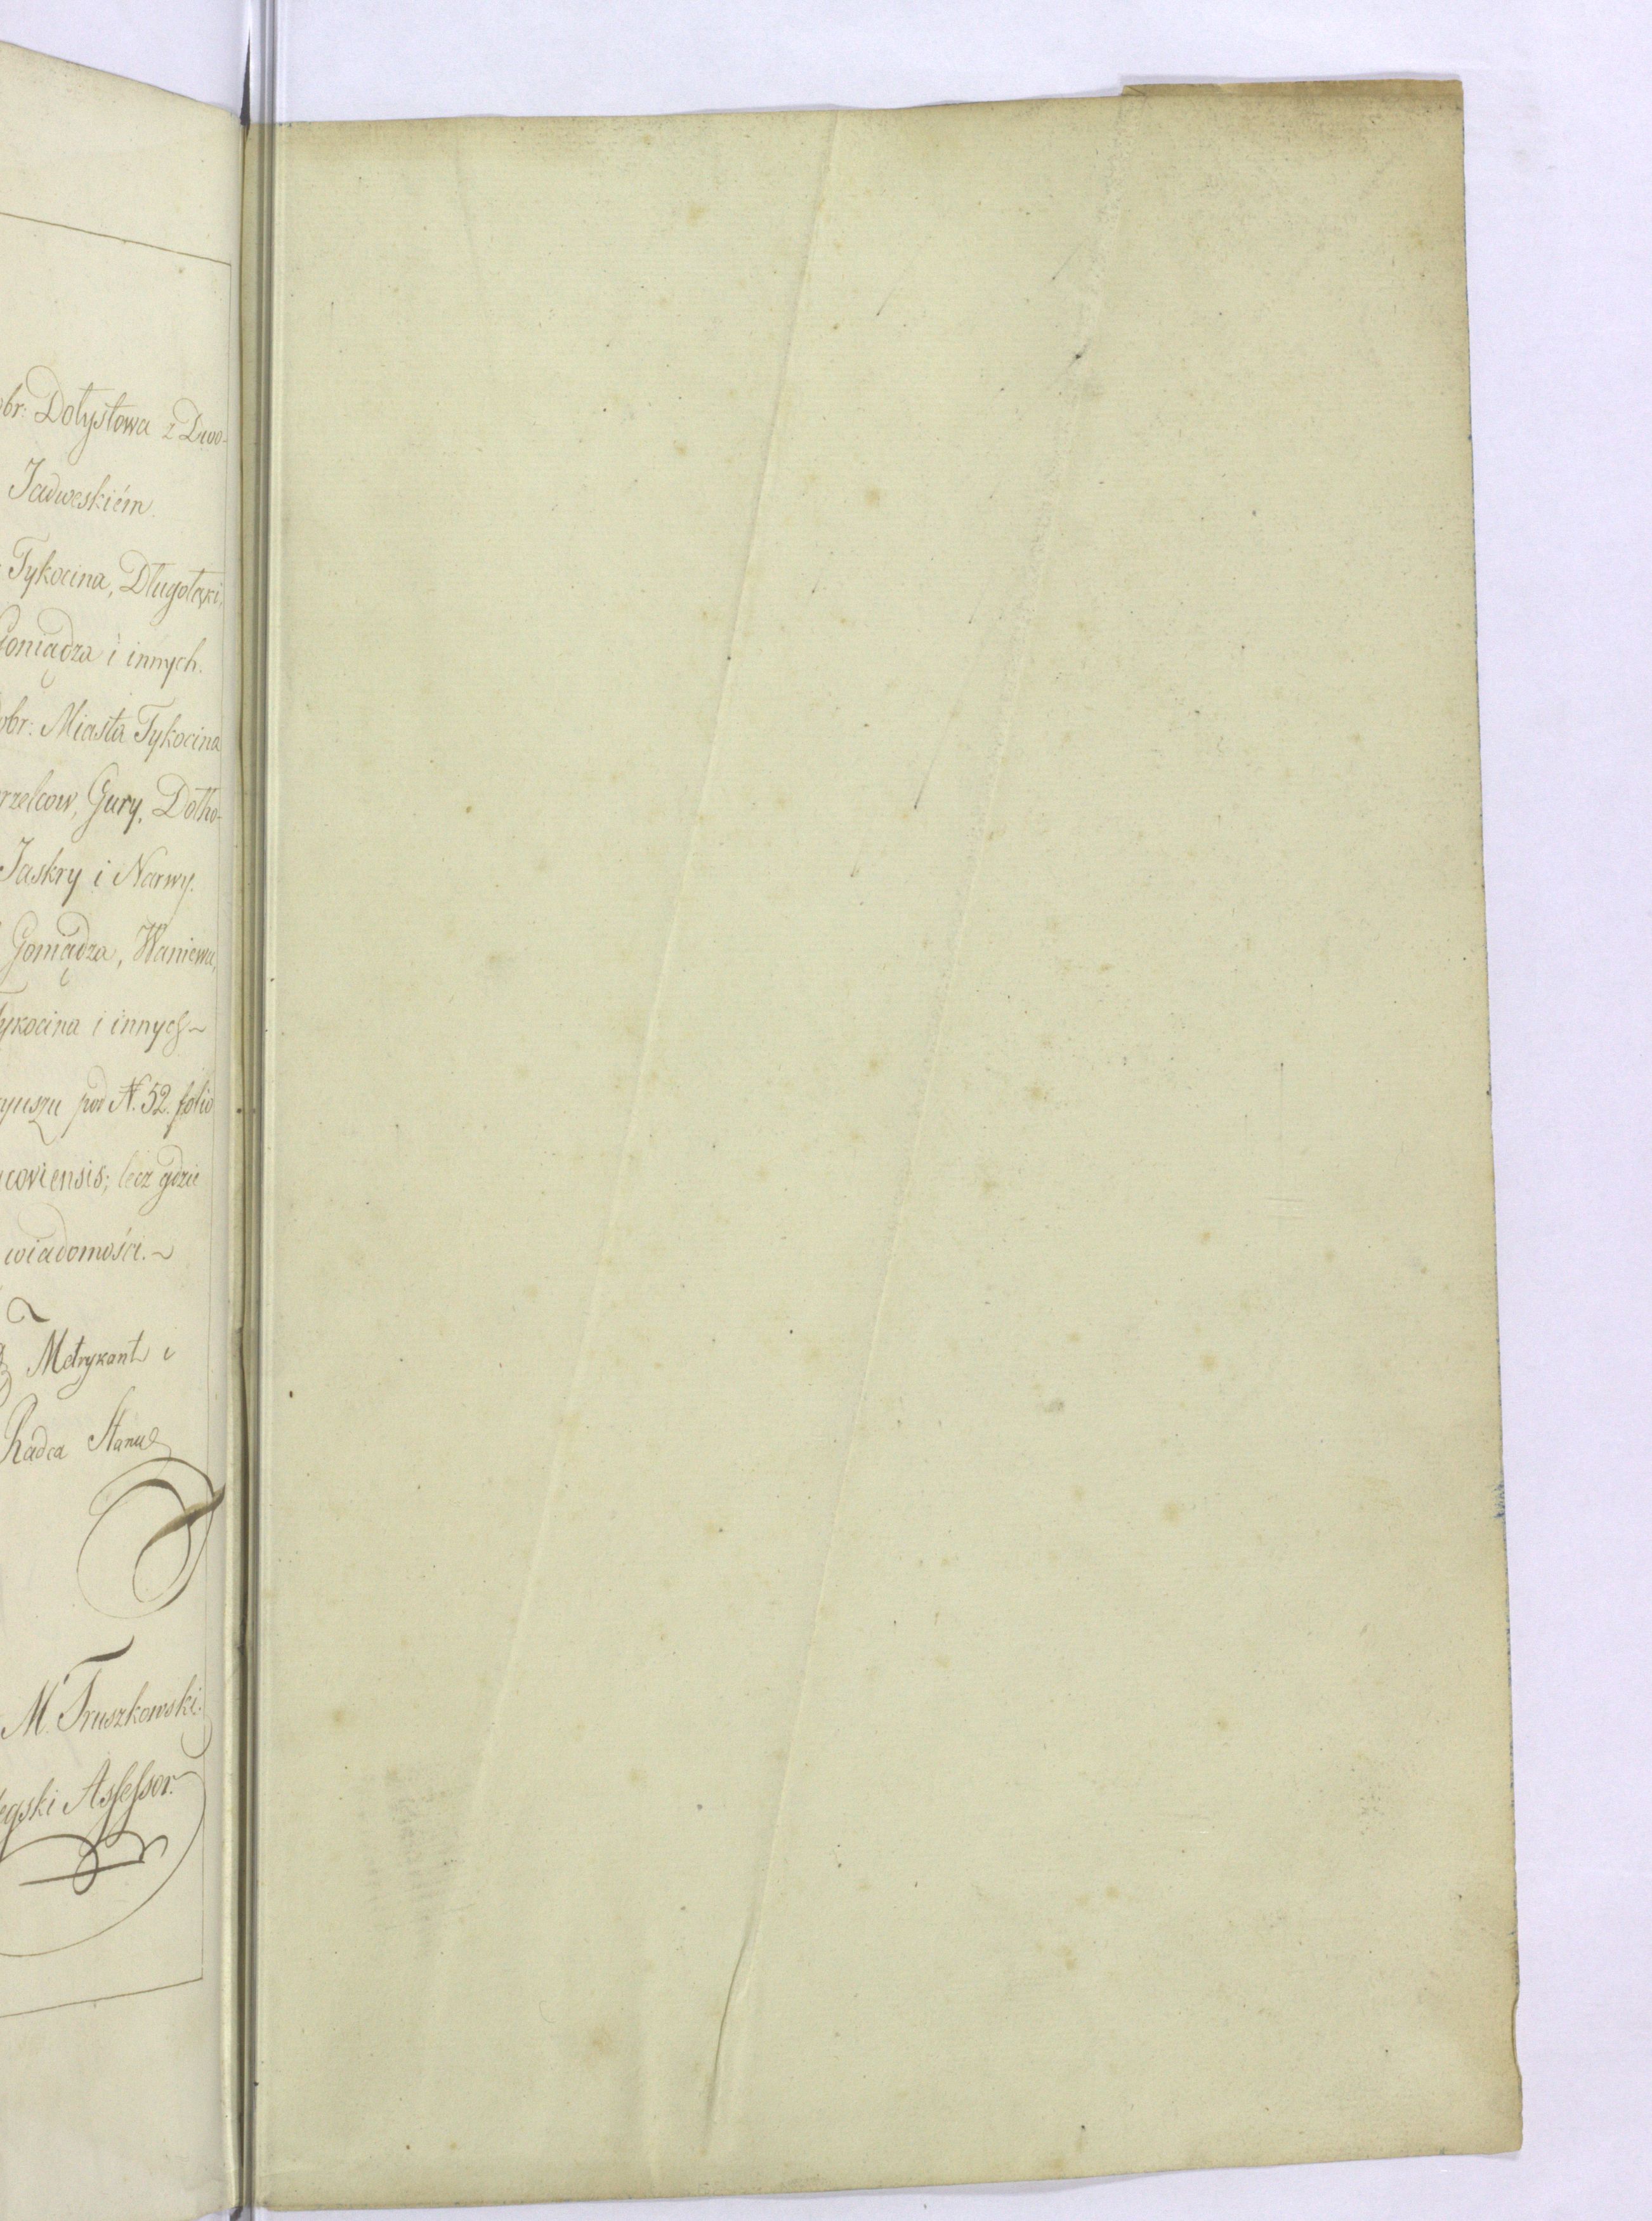 obr: Dołystowa z Dwo-
Jadweskiém.
Tykocina, Długołęki,
Goniądza i innych.
obr: Miasta Tykocina
rzelcow, Gury, Dołho-
Jaskry i Narwy.
Goniądza, Waniewa,
ykocina i innych ~
yuszu pod N. 52. folio
coviensis; lecz gdzie
wiadomości. ~
Metrykant i
Radca Stanu
M. Truszkowski.
Assessor.